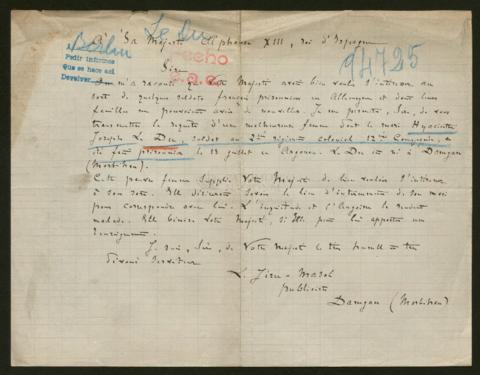 Berlin
Le Du
94725
Pedir informes
Que se hace así
Devolver
Hecho
A Sa Majesté Alphonse XIII, roi d'Espagne
Sire
On m'a raconté que Votre Majesté avait bien voulu s'intéresser au
sort de quelques soldats français prisonniers en Allemagne et dont leurs
familles ne pouvaient avoir de nouvelles. Je me permets, Sire, de vous
transmettre la requête d'une malheureuse femme dont le mari Hyacinthe
Joseph Le Du, soldat au 2me régiment colonial, 12me Compagnie, a
été fait prisonnier le 13 juillet en Argonne. Le Du est né à Damgan
(Morbihan).
Cette pauvre femme supplie Votre Majesté de bien vouloir s'intéresser
à son sort. Elle désirerait savoir le lieu d'internement de son mari
pour correspondre avec lui. L'inquiétude et l'angoisse la rendent
malade. Elle bénira Votre Majesté, si Elle peut lui apporter un
renseignement.
Je suis, Sire, de Votre Majesté le très humble et très
dévoué serviteur
publiciste
Damgan (Morbihan)